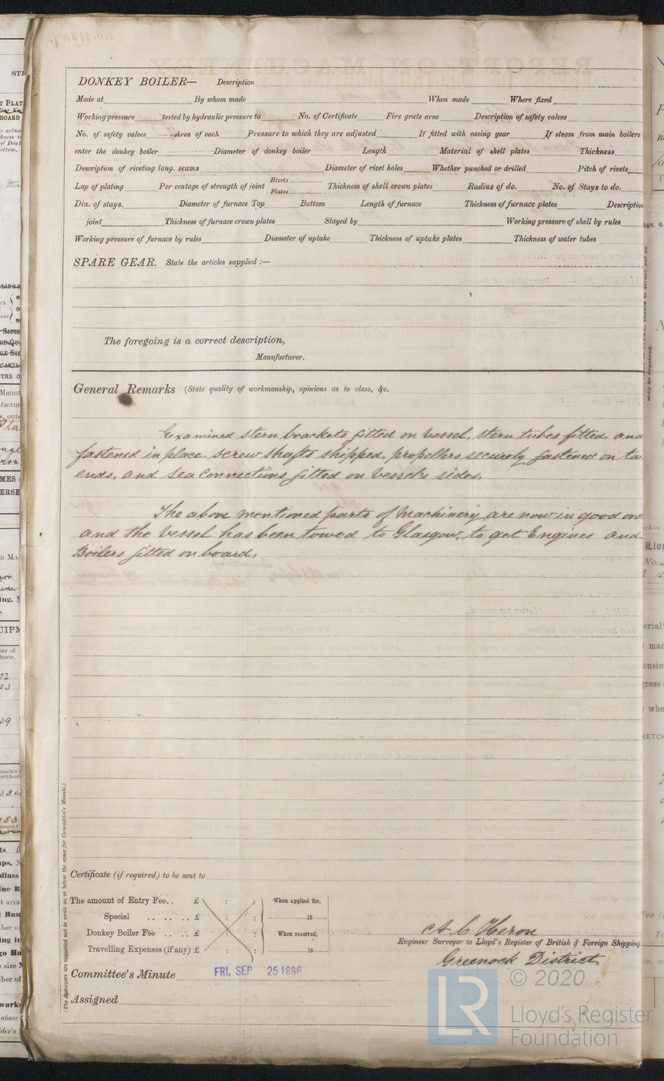 DONKEY BOILER— Description
Made at By whom made When made Where fixed
Working pressure tested by hydraulic pressure to No. of Certificate Fire grate area Description of safety valves
No. of safety valves Area of each Pressure to which they are adjusted If fitted with easing gear If steam from main boilers
enter the donkey boiler Diameter of donkey boiler Length Material of shell plates Thickness
Description of riveting long. seams Diameter of rivet holes Whether punched or drilled Pitch of rivets
Lap of plating Per centage of strength of joint Rivets Plates Thickness of shell crown plates Radius of do. No. of Stays to do.
Dia. of stays. Diameter of furnace Top Bottom Length of furnace Thickness of furnace plates Description
joint Thickness of furnace crown plates Stayed by Working pressure of shell by rules
Working pressure of furnace by rules Diameter of uptake Thickness of uptake plates Thickness of water tubes
SPARE GEAR. State the articles supplied :—
The foregoing is a correct description,
Manufacturer.
General Remarks (State quality of workmanship, opinions as to class, &c.
Examined stern brackets fitted on vessel, stern tubes fitted and
fastened in place. screw shafts shipped, propellers securely fastened on
ends, and sea connections fitted on vessels sides.
The above mentioned parts of Machinery are now in good
and the vessel has been towed to Glasgow, to get Engines and
Boilers fitted on board.
(The Surveyors are requested not to write on or below the space for Committee's Minute.)
Certificate (if required) to be sent to
The amount of Entry Fee.. £ : : When applied for,
Special .. .. .. £ : : 18
Donkey Boiler Fee .. .. £ : : When received,
Travelling Expenses (if any) £ : : 18
A. C. Heron
Engineer Surveyor to Lloyd's Register of British & Foreign Shipping
Greenock District
Committee's Minute FRI. SEP 25 1896
Assigned
LR
© 2020
Lloyd's Register
Foundation